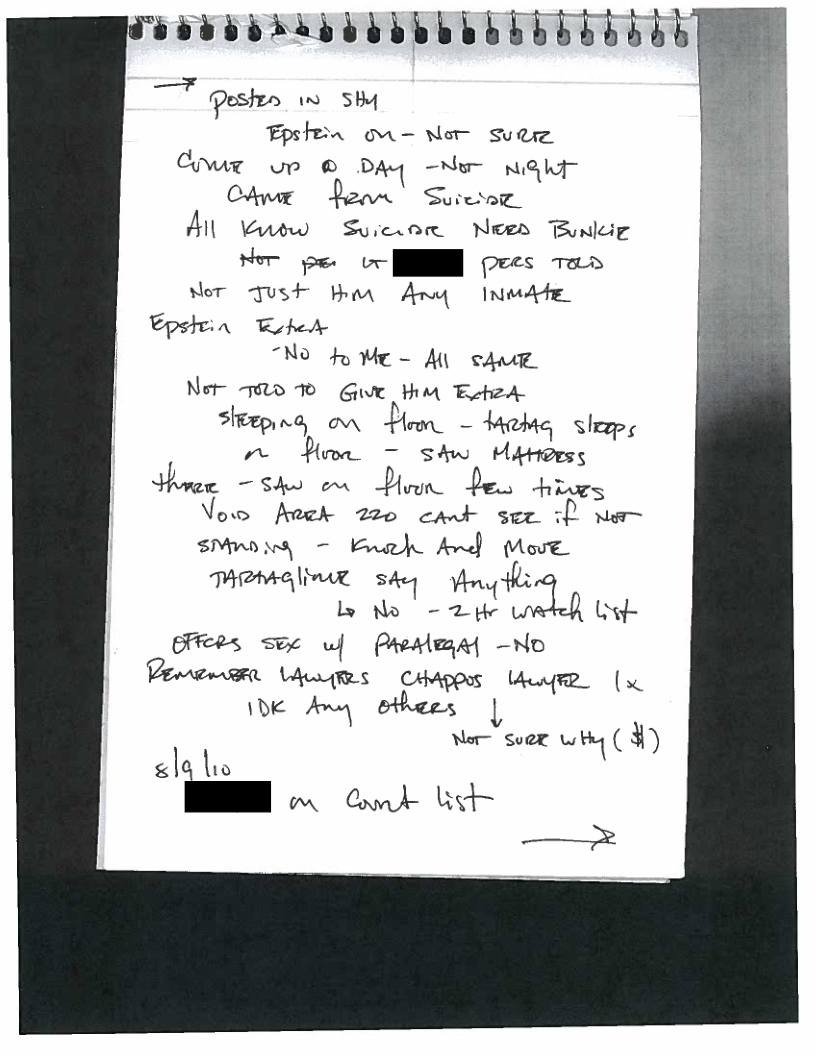 → Posted in SHU
Epstein on - Not sure
Come up @ Day - Not Night
Came from Suicide
All know Suicide Need Bunkie
Not per LT pers told
Not just Him Any inmate
Epstein Extra
- No to Me - All same
Not told to Give Him Extra
Sleeping on floor - tartag sleeps
on floor - saw Mattress
there - saw on floor few times
Void Area 220 cant see if not
standing - Knock And Move
Tartaglione say Anything
↳ No - 2 Hr watch list
Offers sex w/ Paralegal - No
Remember Lawyers Chappos Lawyer 1x
IDK Any others ↓
Not sure why ($)
8/9/10
on Count list
→